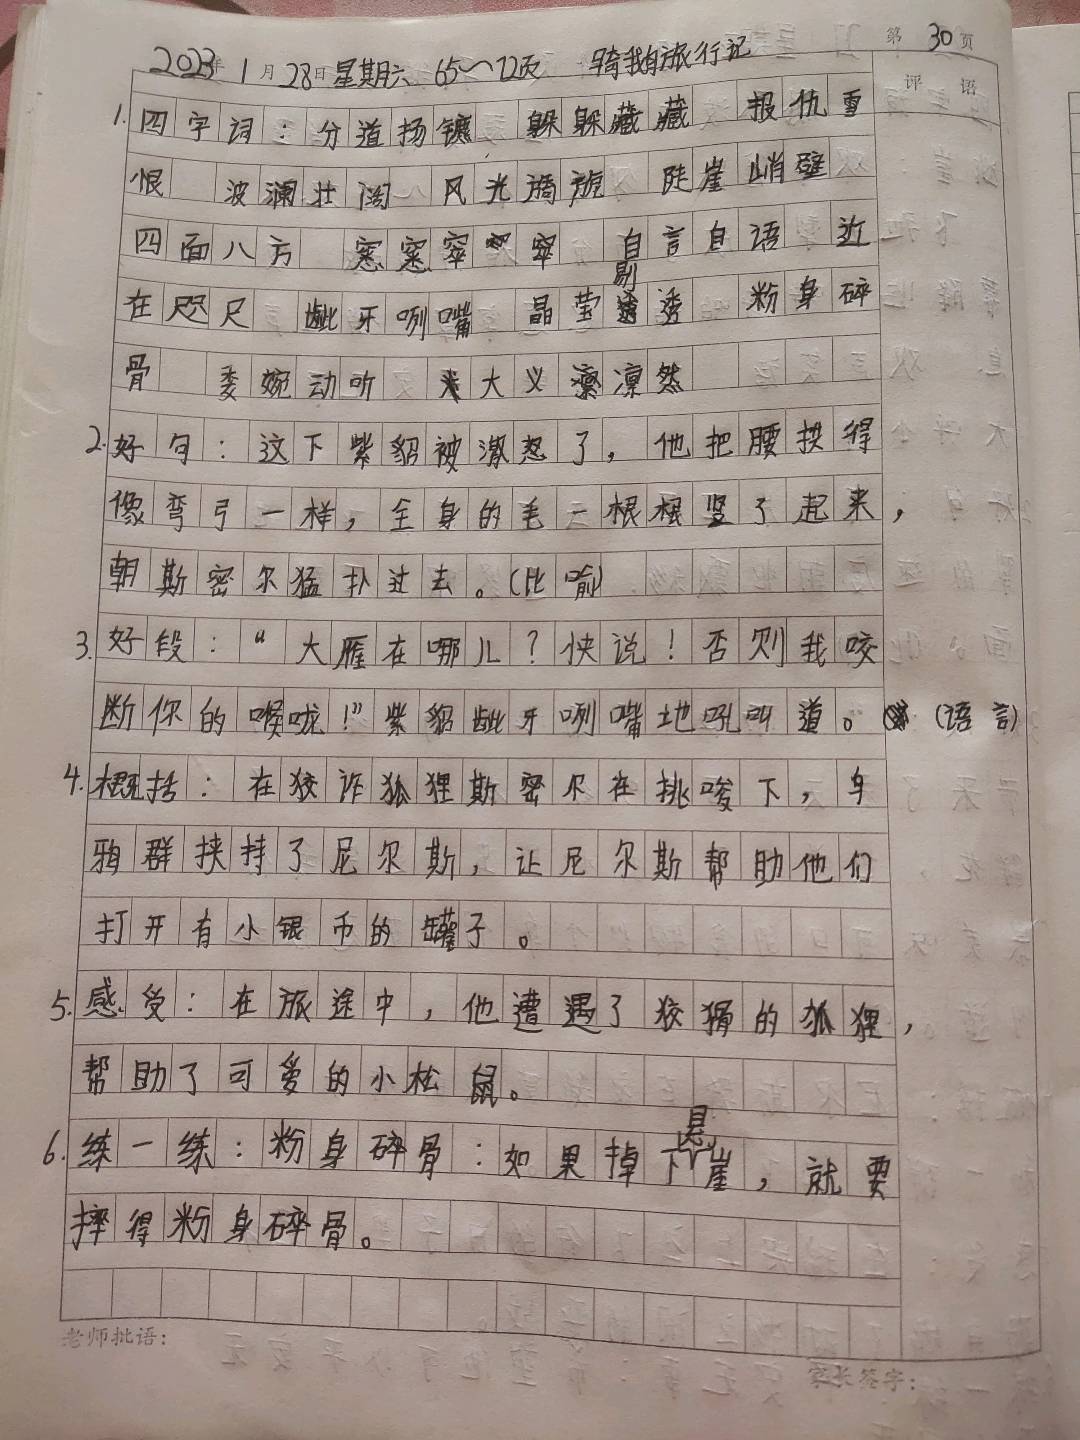 第 30 页
2023年 1 月 28日 星期六 65～72页 骑鹅旅行记
评 语
1. 四字词：分道扬镳 躲躲藏藏 报仇重
恨 波澜壮阔 风光旖旎 陡崖峭壁
四面八方 窸窸窣窣 自言自语 近
在咫尺 龇牙咧嘴 晶莹剔透 粉身碎
骨 委婉动听 大义凛然
2. 好句：这下紫貂被激怒了，他把腰拱得
像弯弓一样，全身的毛一根根竖了起来，
朝斯密尔猛扑过去。（比喻）
3. 好段：“大雁在哪儿？快说！否则我咬
断你的喉咙！”紫貂龇牙咧嘴地吼叫道。（语言）
4. 概括：在狡诈狐狸斯密尔在挑唆下，乌
鸦群挟持了尼尔斯，让尼尔斯帮助他们
打开有小银币的罐子。
5. 感受：在旅途中，他遭遇了狡猾的狐狸，
帮助了可爱的小松鼠。
6. 练一练：粉身碎骨：如果掉下悬崖，就要
摔得粉身碎骨。
老师批语：
家长签字：